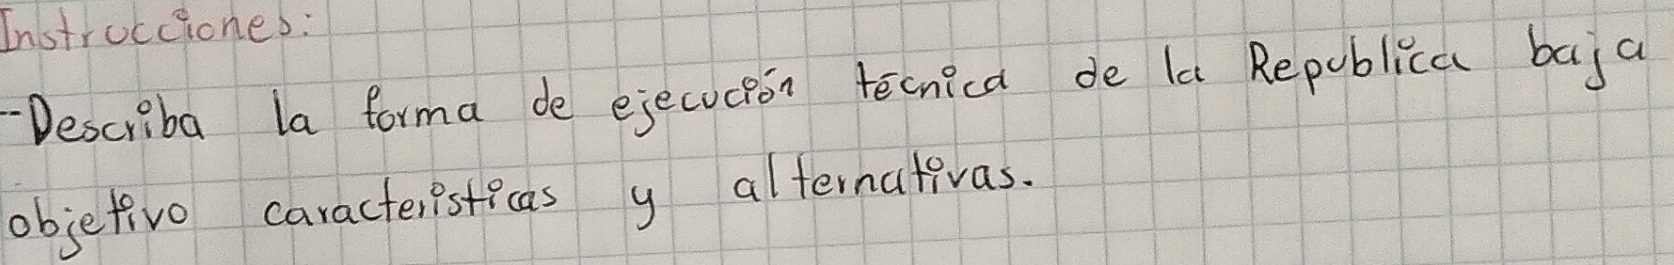 Instrucciones:
-Describa la forma de ejecución técnica de la Republica baja
objetivo caracteristicas y alternativas.